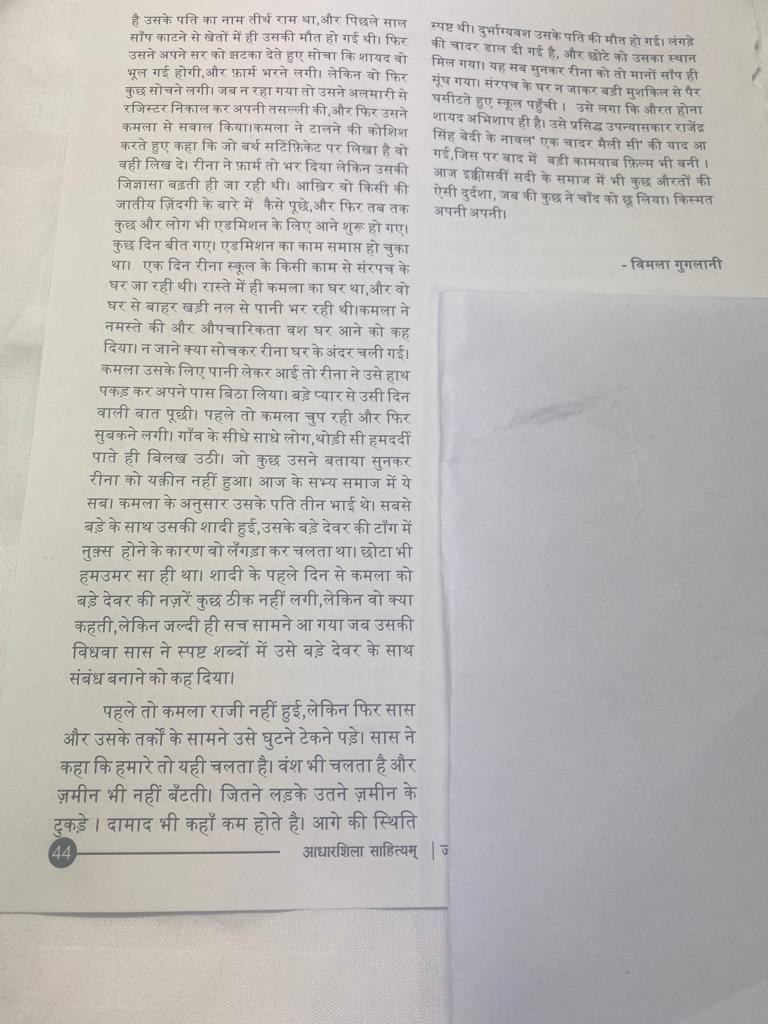 है उसके पति का नाम तीर्थ राम था,और पिछले साल
साँप काटने से खेतों में ही उसकी मौत हो गई थी। फिर
उसने अपने सर को झटका देते हुए सोचा कि शायद वो
भूल गई होगी,और फ़ार्म भरने लगी। लेकिन वो फिर
कुछ सोचने लगी। जब न रहा गया तो उसने अलमारी से
रजिस्टर निकाल कर अपनी तसल्ली की,और फिर उसने
कमला से सवाल किया।कमला ने टालने की कोशिश
करते हुए कहा कि जो बर्थ सर्टिफ़िकेट पर लिखा है वो
वही लिख दे। रीना ने फ़ार्म तो भर दिया लेकिन उसकी
जिज्ञासा बढ़ती ही जा रही थी। आख़िर वो किसी की
जातीय ज़िंदगी के बारे में कैसे पूछे,और फिर तब तक
कुछ और लोग भी एडमिशन के लिए आने शुरू हो गए।
कुछ दिन बीत गए। एडमिशन का काम समाप्त हो चुका
था। एक दिन रीना स्कूल के किसी काम से संरपच के
घर जा रही थी। रास्ते में ही कमला का घर था,और वो
घर से बाहर खड़ी नल से पानी भर रही थी।कमला ने
नमस्ते की और औपचारिकता वश घर आने को कह
दिया। न जाने क्या सोचकर रीना घर के अंदर चली गई।
कमला उसके लिए पानी लेकर आई तो रीना ने उसे हाथ
पकड़ कर अपने पास बिठा लिया। बड़े प्यार से उसी दिन
वाली बात पूछी। पहले तो कमला चुप रही और फिर
सुबकने लगी। गाँव के सीधे साधे लोग,थोड़ी सी हमदर्दी
पाते ही बिलख उठी। जो कुछ उसने बताया सुनकर
रीना को यक़ीन नहीं हुआ। आज के सभ्य समाज में ये
सब। कमला के अनुसार उसके पति तीन भाई थे। सबसे
बड़े के साथ उसकी शादी हुई,उसके बड़े देवर की टाँग में
नुक़्स होने के कारण वो लँगड़ा कर चलता था। छोटा भी
हमउमर सा ही था। शादी के पहले दिन से कमला को
बड़े देवर की नज़रें कुछ ठीक नहीं लगी,लेकिन वो क्या
कहती,लेकिन जल्दी ही सच सामने आ गया जब उसकी
विधवा सास ने स्पष्ट शब्दों में उसे बड़े देवर के साथ
संबंध बनाने को कह दिया।
पहले तो कमला राजी नहीं हुई,लेकिन फिर सास
और उसके तर्कों के सामने उसे घुटने टेकने पड़े। सास ने
कहा कि हमारे तो यही चलता है। वंश भी चलता है और
ज़मीन भी नहीं बँटती। जितने लड़के उतने ज़मीन के
टुकड़े । दामाद भी कहाँ कम होते है। आगे की स्थिति
स्पष्ट थी। दुर्भाग्यवश उसके पति की मौत हो गई। लंगड़े
की चादर डाल दी गई है, और छोटे को उसका स्थान
मिल गया। यह सब सुनकर रीना को तो मानों साँप ही
सूंघ गया। संरपच के घर न जाकर बड़ी मुशकिल से पैर
घसीटते हुए स्कूल पहुँची । उसे लगा कि औरत होना
शायद अभिशाप ही है। उसे प्रसिद्ध उपन्यासकार राजेंद्र
सिंह बेदी के नावल' एक चादर मैली सी' की याद आ
गई,जिस पर बाद में बड़ी कामयाब फ़िल्म भी बनी ।
आज इक्कीसवीं सदी के समाज में भी कुछ औरतों की
ऐसी दुर्दशा, जब की कुछ ने चाँद को छू लिया। किस्मत
अपनी अपनी।
- विमला गुगलानी
44 आधारशिला साहित्यम् |